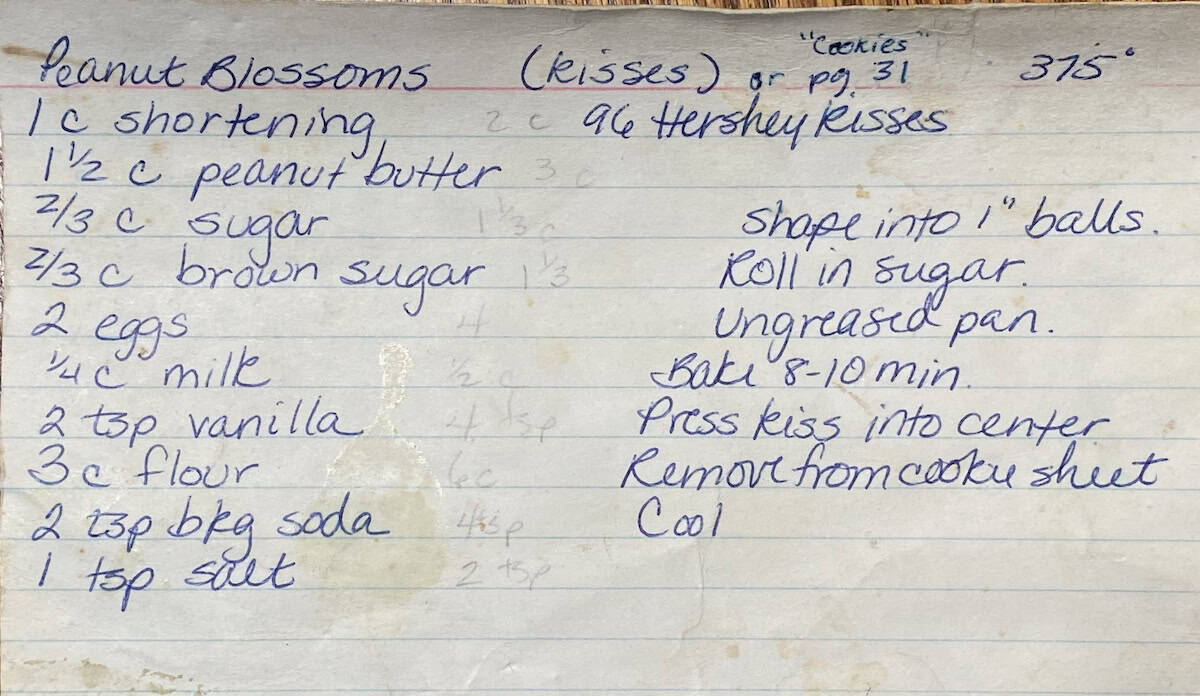 "Cookies"
Peanut Blossoms (kisses) or pg. 31 375°
1 c shortening 2 c 96 Hershey kisses
1 1/2 c peanut butter 3 c
2/3 c sugar 1 1/3 c Shape into 1" balls.
2/3 c brown sugar 1 1/3 Roll in sugar.
2 eggs 4 Ungreased pan.
1/4 c milk 1/2 c Bake 8-10 min.
2 tsp vanilla 4 tsp Press kiss into center
3 c flour 6c Remove from cookie sheet
2 tsp bkg soda 4tsp Cool
1 tsp salt 2 tsp